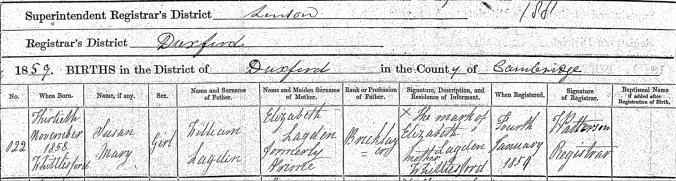 Superintendent Registrar's District Linton 188
Registrar's District Duxford
1859. BIRTHS in the District of Duxford in the County of Cambridge
No. When Born. Name, if any. Sex. Name and Surname of Father. Name and Maiden Surname of Mother. Rank or Profession of Father. Signature, Description, and Residence of Informant. When Registered. Signature of Registrar. Baptismal Name if added after Registration of Birth.
022 Thirtieth November 1858 Whittlesford Susan Mary Girl William Lagden Elizabeth Lagden formerly Bricklayer X The mark of Elizabeth Lagden mother Whittlesford Fourth January 1859 Patterson Registrar